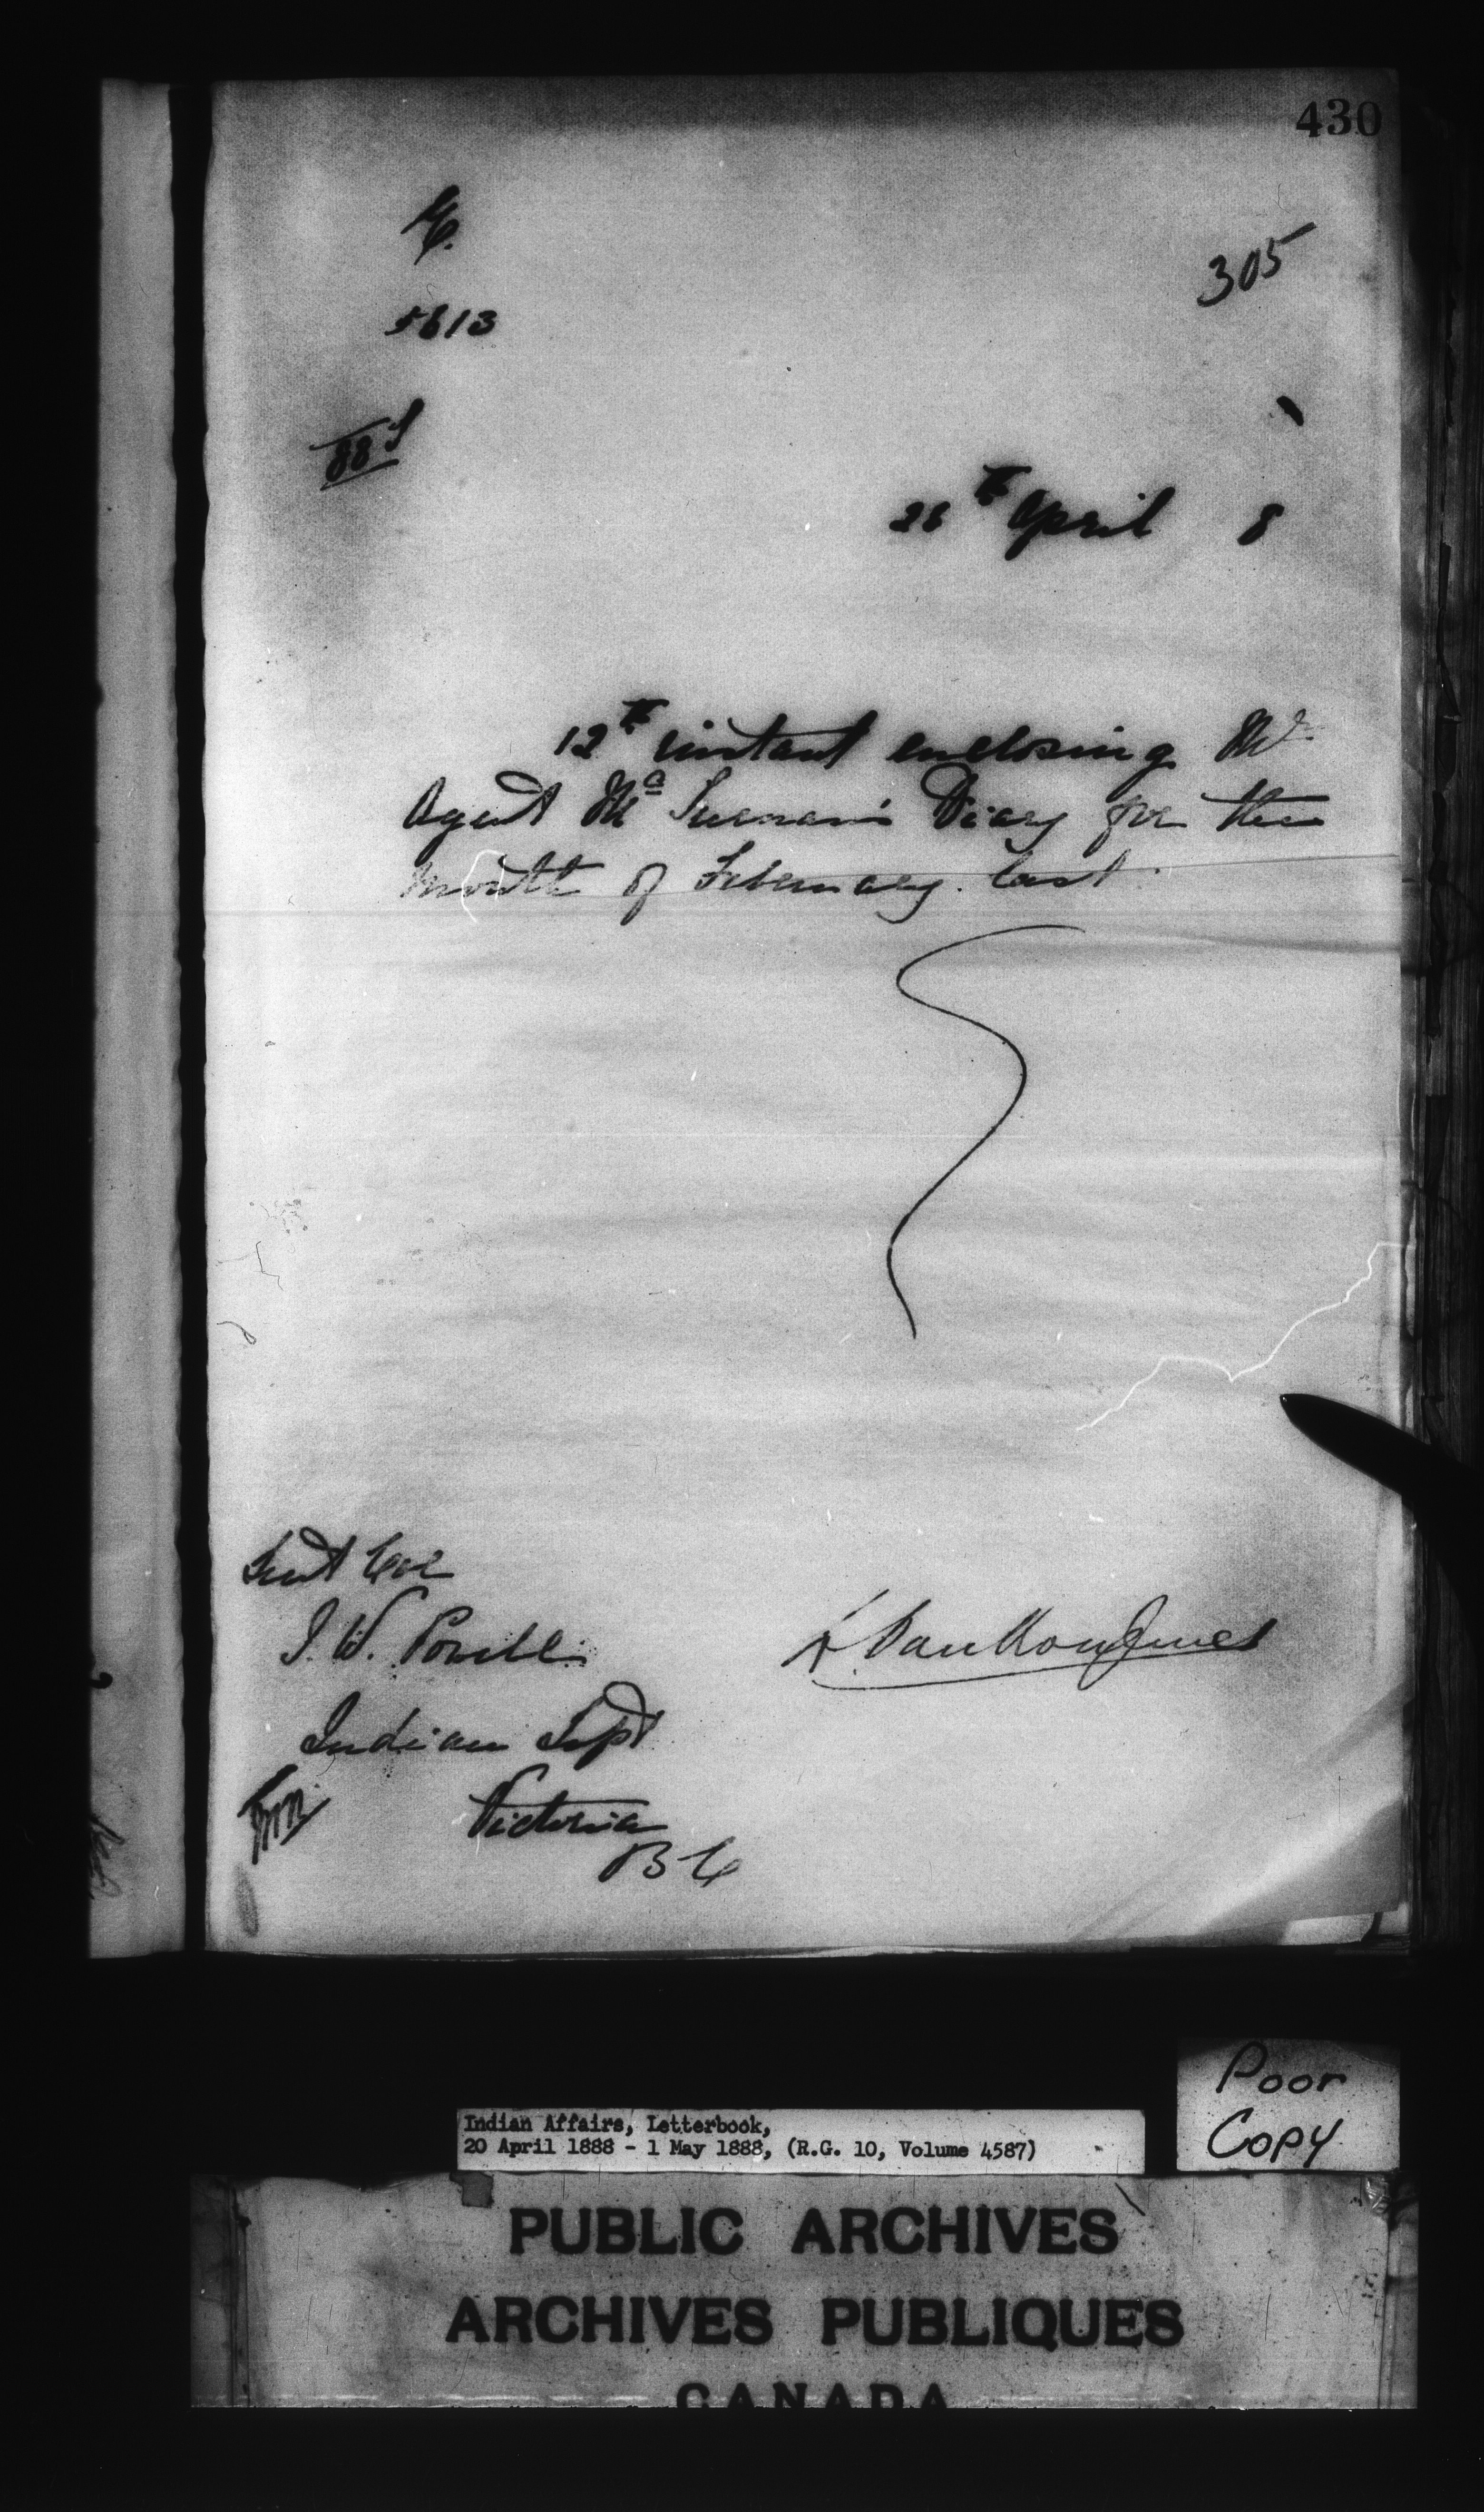 430
305
5613
88
26th April 8
12th instant enclosing Mr
Agent Mc Tiernan's Diary for the
month of February last
Lieut Col
I. W. Powell
L. VanKoughnet
Indian Supt
Victoria
B C
Poor
Copy
Indian Affairs, Letterbook,
20 April 1888 - 1 May 1888, (R.G. 10, Volume 4587)
PUBLIC ARCHIVES
ARCHIVES PUBLIQUES
CANADA